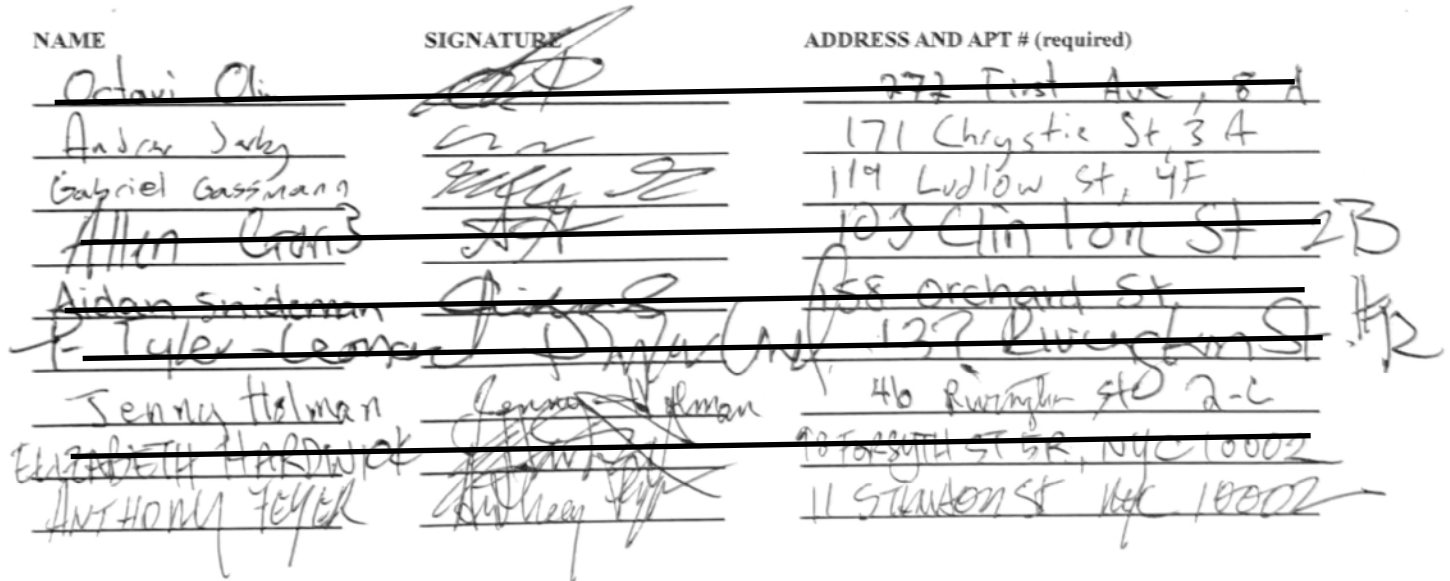 NAME SIGNATURE ADDRESS AND APT # (required)
Octavi 272 First Ave, 8 A
171 Chrystie St, 3 A
Gabriel Gassmann 119 Ludlow St, 4F
Allen 103 Clinton St 2B
Aidan snideman 158 orchard St
Tyler Leonard 137 Rivington St
Jenny Holman Jenny Holman 46 Rivington St 2-C
ELIZABETH HARDWICK 90 FORSYTH ST 5R, NYC 10002
ANTHONY FEYER Anthony 11 STANTON ST NYC 10002